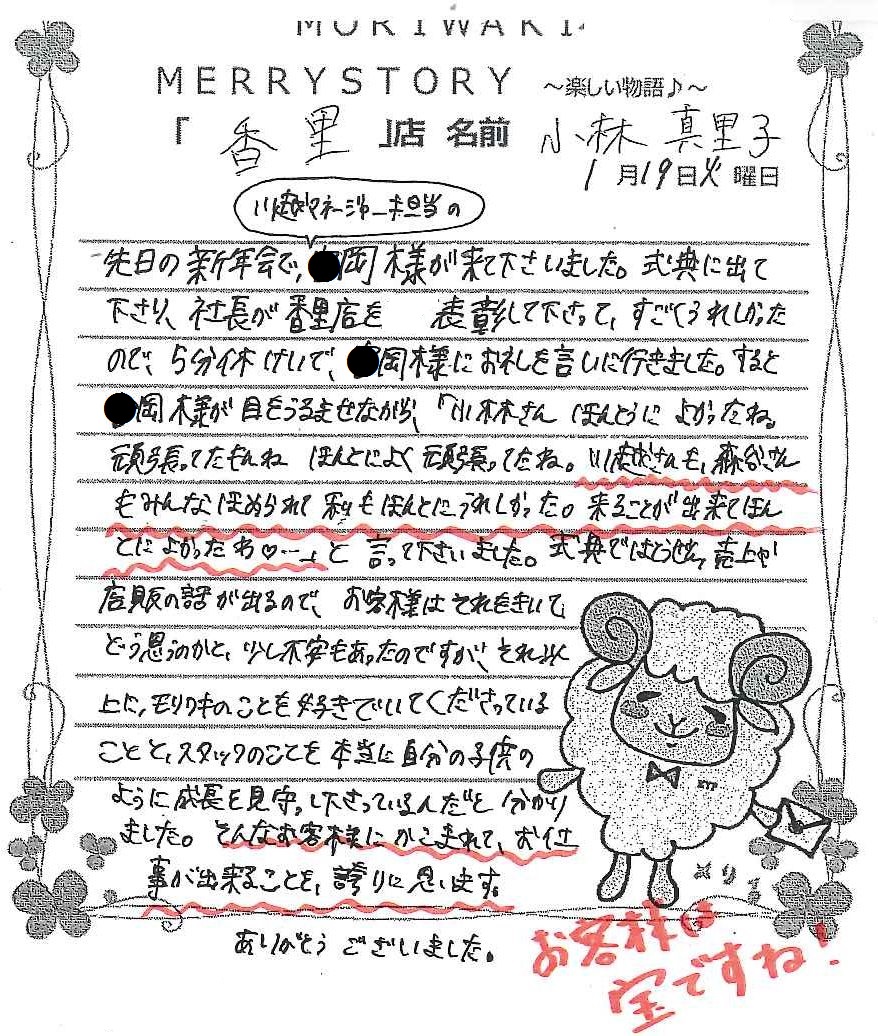 MORIWAKI
MERRYSTORY ～楽しい物語♪～
「香里」店 名前 小林 真里子
1月19日火曜日
川越マネージャー担当の
先日の新年会で、岡様が来て下さいました。式典に出て
下さり、社長が香里店を 表彰して下さって、すごくうれしかった
ので、5分休けいで、岡様にお礼を言いに行きました。すると
岡様が目をうるませながら、「小林さん ほんとうに よかったね。
頑張ってたもんね ほんとによく頑張ってたね。川越さんも、森谷さん
もみんなほめられて私もほんとにうれしかった。来ることが出来てほん
とによかったわ♡…」と 言って下さいました。式典ではどうせ、売上や
店販の話が出るので、お客様はそれをきいて
どう思うのかと、少し不安もあったのですが、それ以
上に、モリワキのことを好きでいてくださっている
ことと、スタッフのことを本当に自分の子供の
ように成長を見守って下さっているんだと分かり
ました。そんなお客様にかこまれて、お仕
事が出来ることを、誇りに思います。
ありがとう ございました。
お客様は
宝ですね!